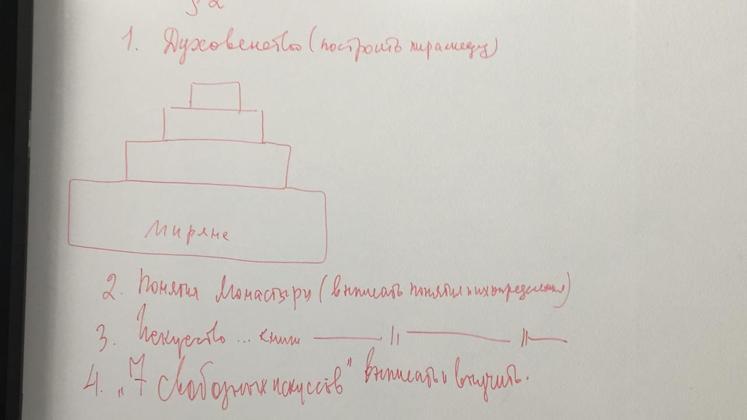 § 2
1. Духовенство (построить пирамиду)
Миряне
2. Понятия монастыри (выписать понятия и их определения)
3. Искусство ... книги ——— || ——— || —
4. „7 свободных искусств" выписать и выучить.